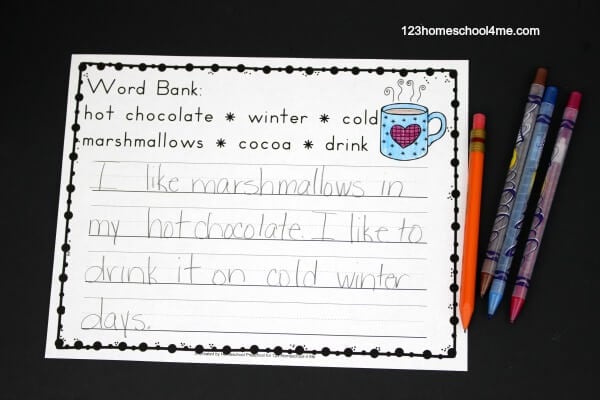 123homeschool4me.com
Word Bank:
hot chocolate * winter * cold
marshmallows * cocoa * drink
I like marshmallows in
my hot chocolate. I like to
drink it on cold winter
days.